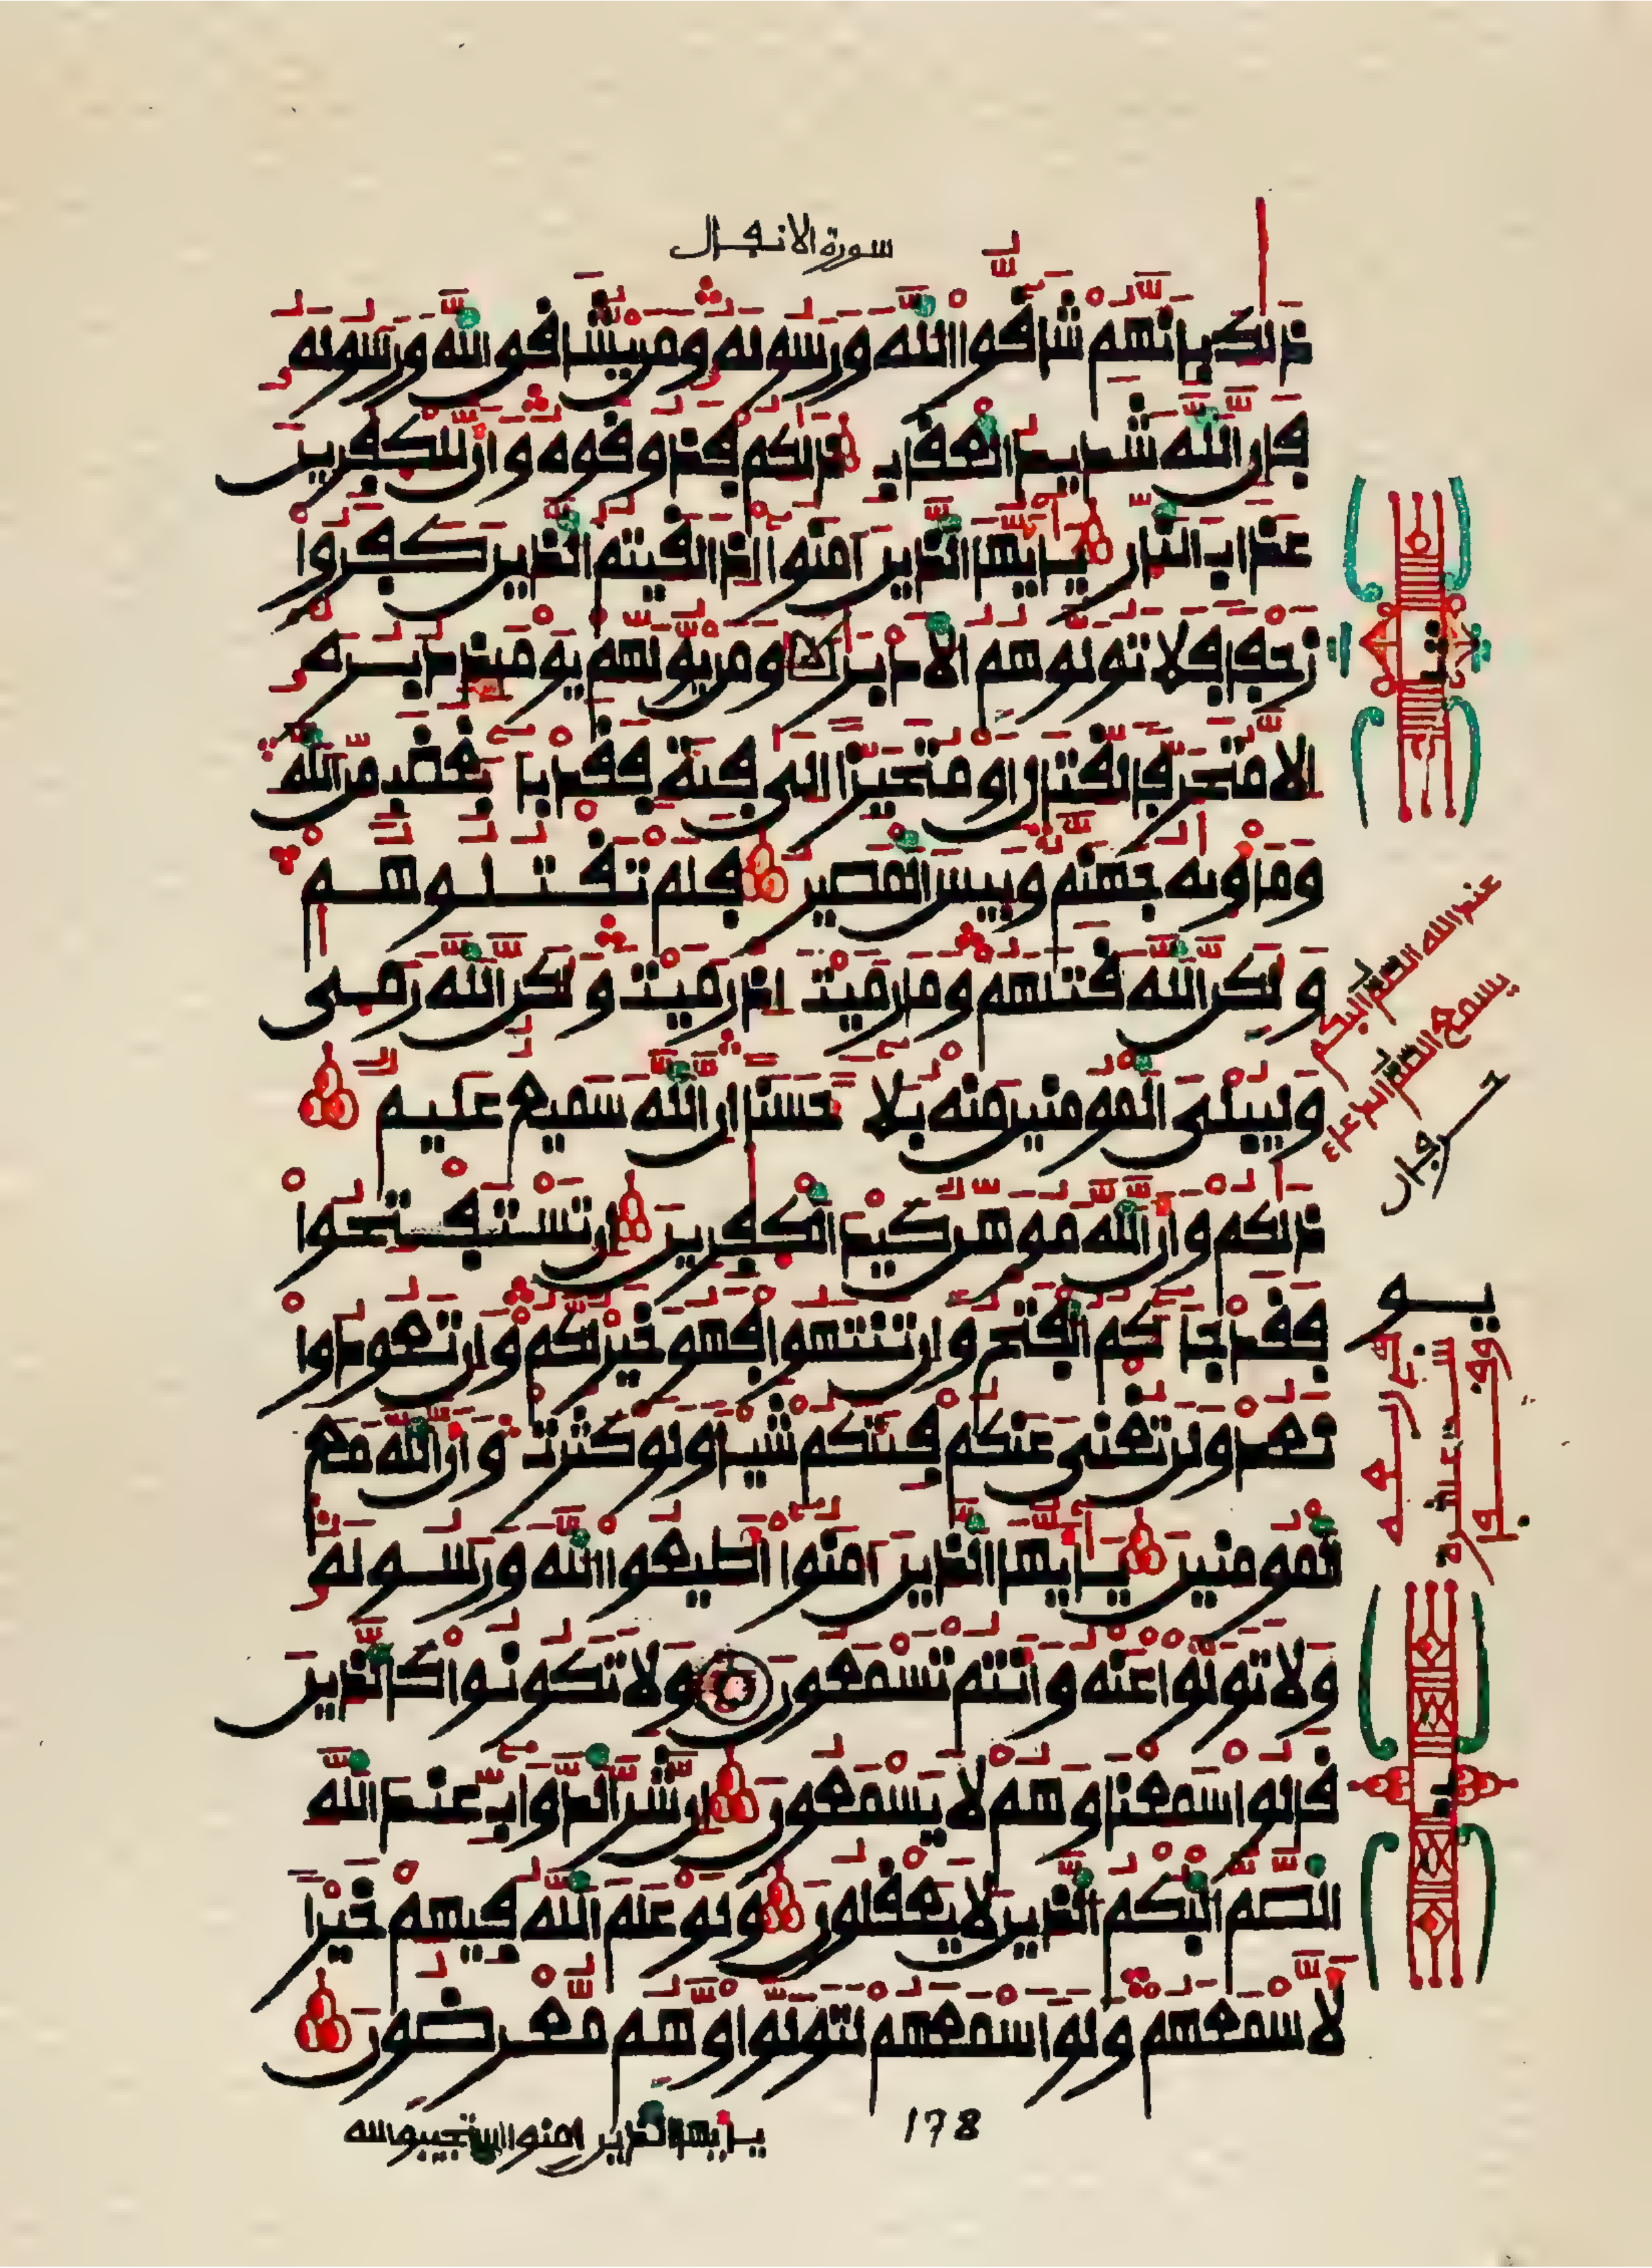 سورة الانفال
ذلك بانهم شاقوا الله ورسوله ومن يشاقق الله ورسوله
فإن الله شديد العقاب ذلكم فذوقوه وأن للكفرين
عذاب النار يأيها الذين ءامنوا إذا لقيتم الذين كفروا
زحفا فلا تولوهم الادبر ومن يولهم يومئذ دبره
إلا متحرفا لقتال او متحيزا الى فئة فقد باء بغضب من الله
ومأويه جهنم وبيس المصير فلم تقتلوهم
ولكن الله قتلهم وما رميت إذ رميت ولكن الله رمى
وليبلى المومنين منه بلاء حسنا ان الله سميع عليم
ذلكم وأن الله موهن كيد الكفرين إن تستفتحوا
فقد جاءكم الفتح وإن تنتهوا فهو خير لكم وإن تعودوا
نعد ولن تغنى عنكم فئتكم شيئا ولو كثرت وأن الله مع
المومنين يأيها الذين ءامنوا أطيعوا الله ورسوله
ولا تولوا عنه وأنتم تسمعون ولا تكونوا كالذين
قالوا سمعنا وهم لا يسمعون إن شر الدواب عند الله
الصم البكم الذين لا يعقلون ولو علم الله فيهم خيرا
لأسمعهم ولو اسمعهم لتولوا وهم معرضون
عند الله الصم البكم
يسمع الصم الدعاء
حرفان
178
يأيها الذين ءامنوا استجيبوا لله